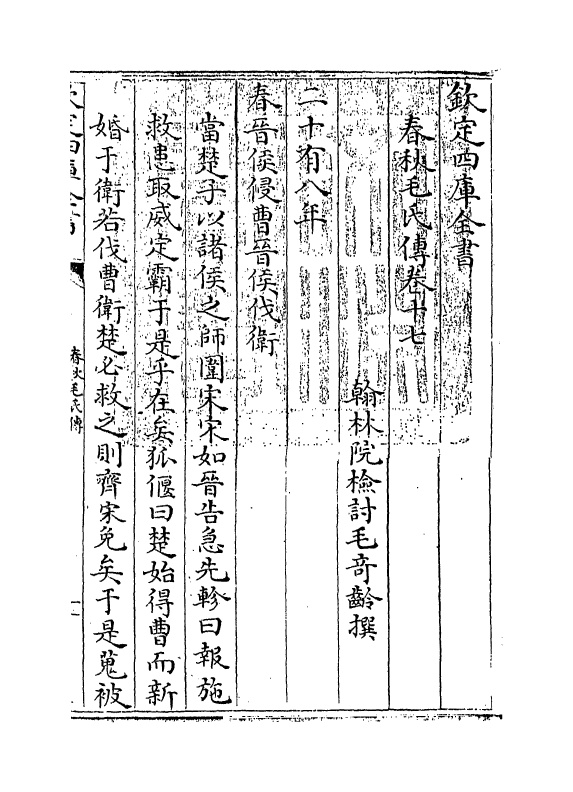 欽定四庫全書
春秋毛氏傳卷十七
翰林院檢討毛奇齡撰
二十有八年
春晉侯侵曹晉侯伐衛
當楚子以諸侯之師圍宋宋如晉告急先軫曰報施
救患取威定霸于是乎在矣狐偃曰楚始得曹而新
婚于衛若伐曹衛楚必救之則齊宋免矣于是蒐被
欽定四庫全書
春秋毛氏傳
一